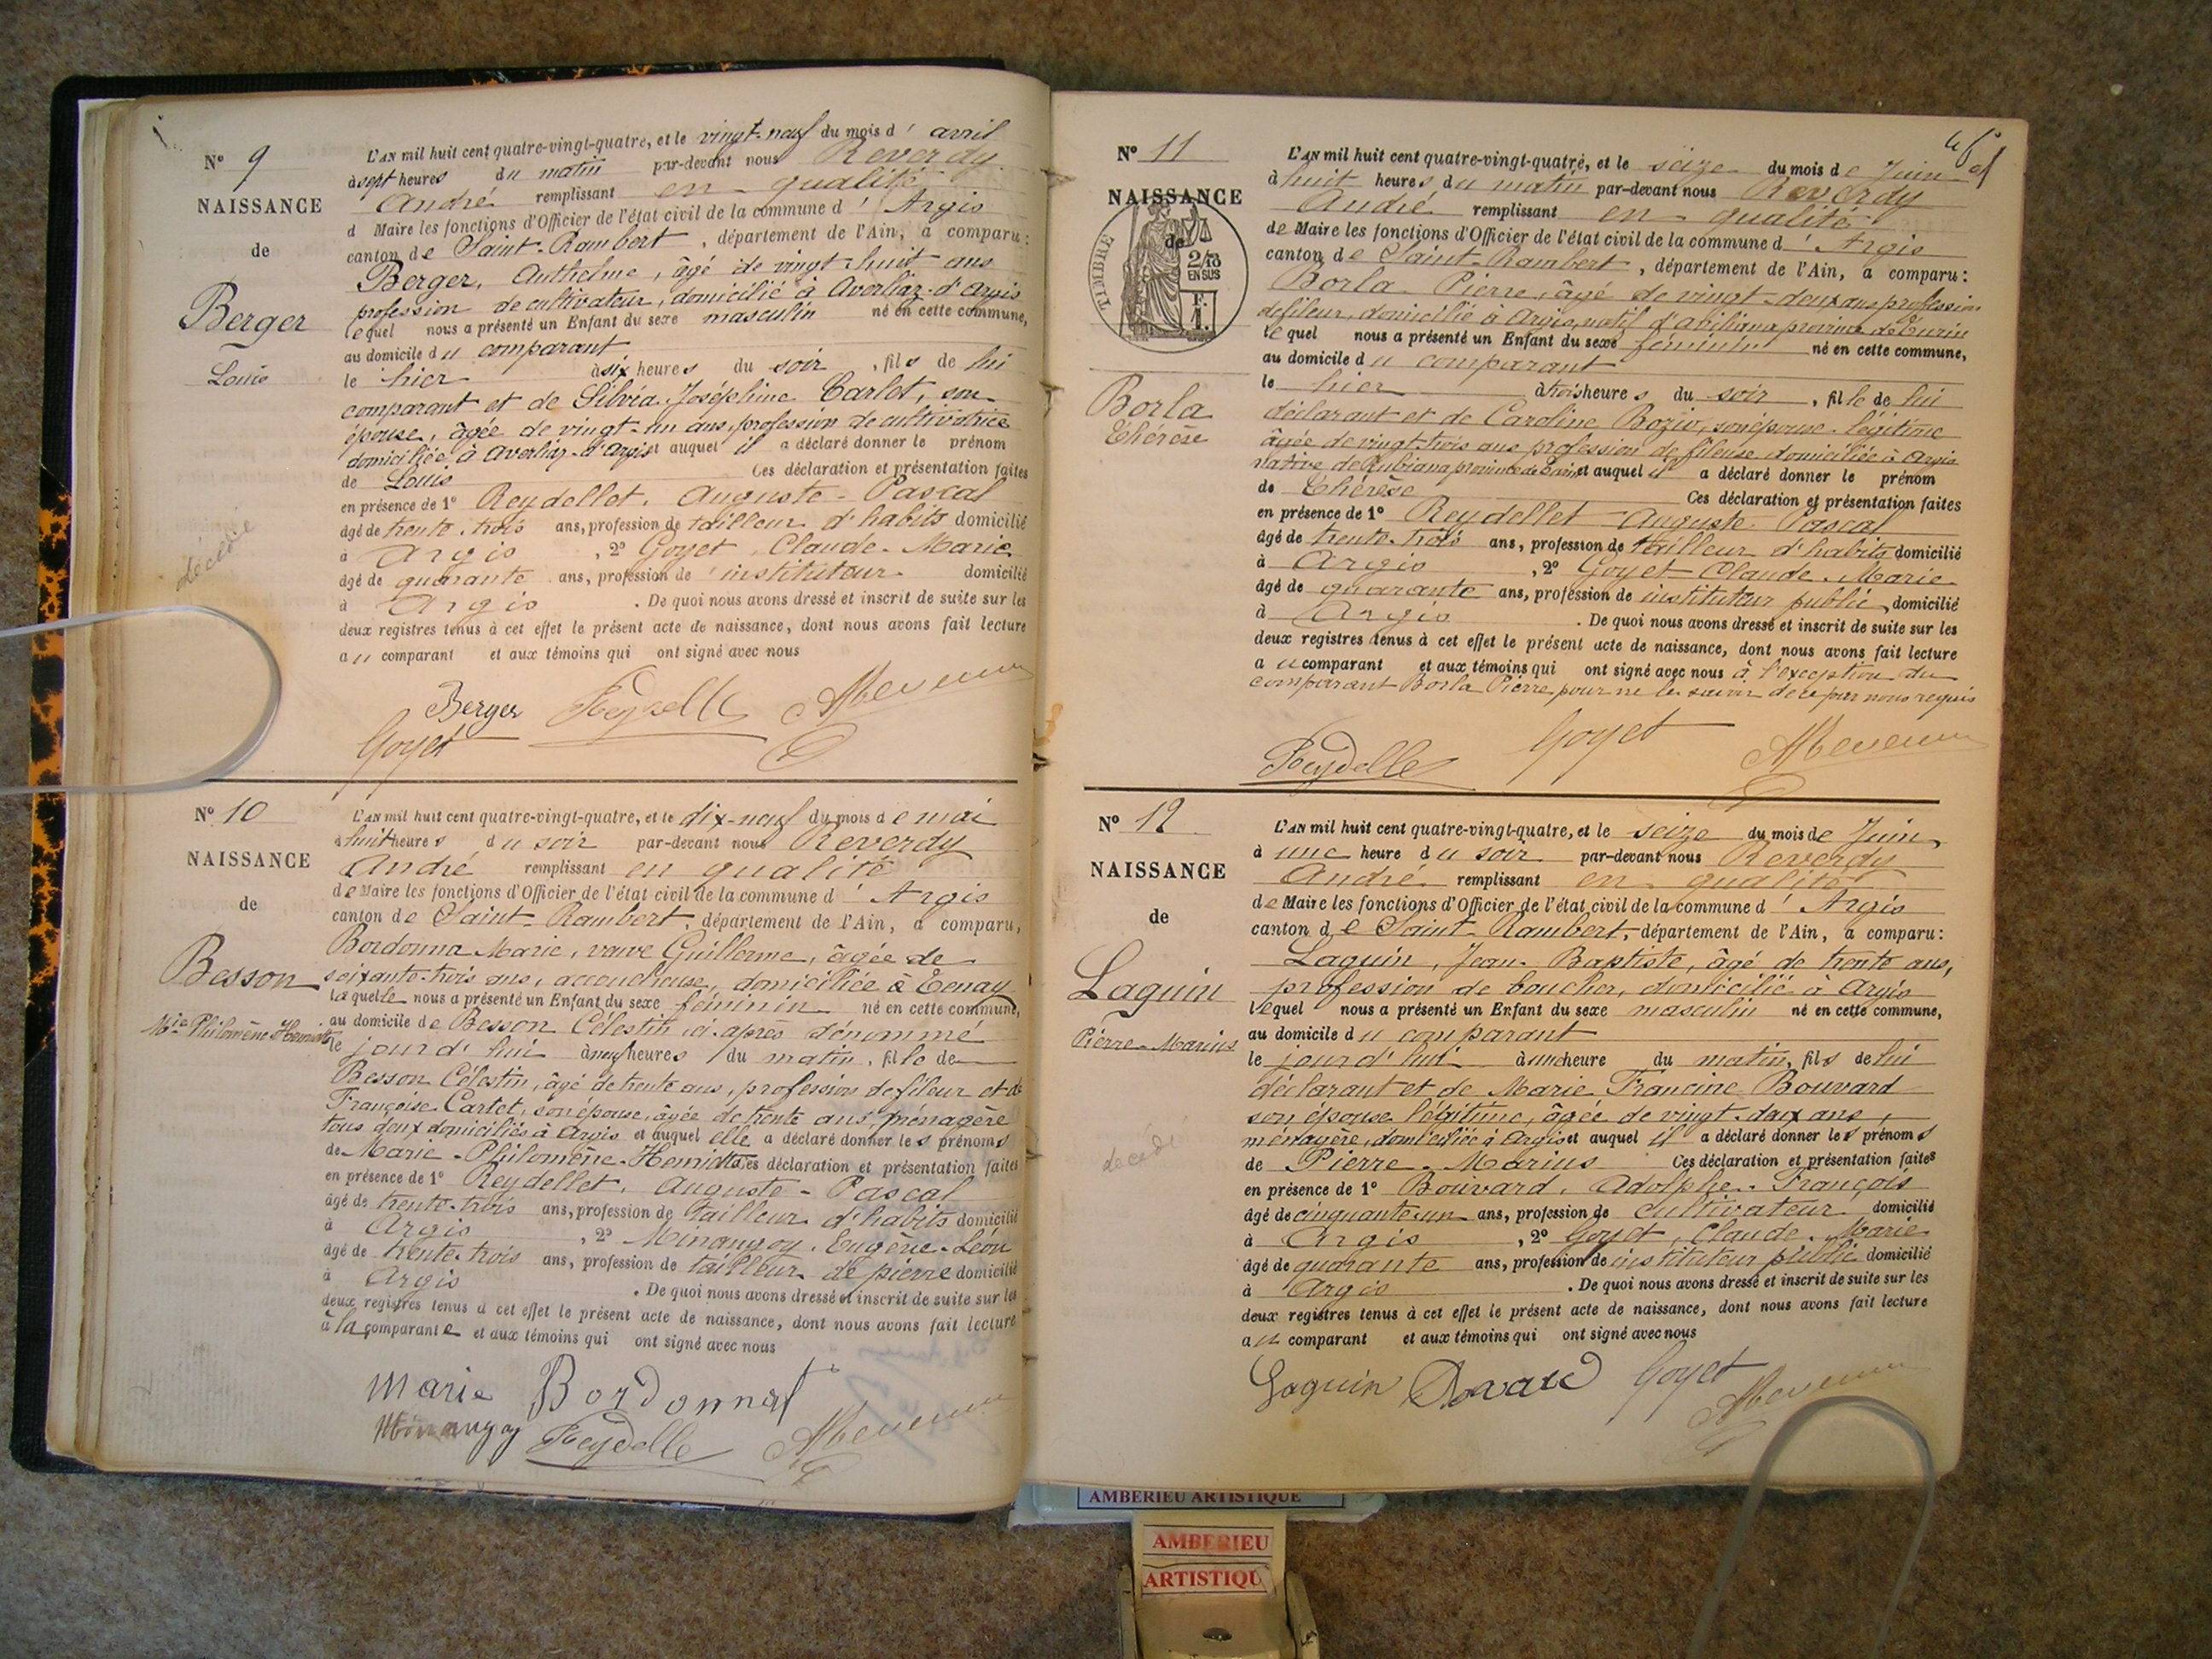 N° 9
NAISSANCE
de
Berger
Louis
décédé
L'AN mil huit cent quatre-vingt-quatre, et le vingt-neuf du mois d' avril
à sept heures du matin par-devant nous Reverdy
André remplissant en qualité
d Maire les fonctions d'Officier de l'état civil de la commune d' Argis
canton de Saint-Rambert, département de l'Ain, a comparu :
Berger, Anthelme, âgé de vingt-huit ans
profession de cultivateur, domicilié à Averliaz-d'Argis
lequel nous a présenté un Enfant du sexe masculin né en cette commune,
au domicile du comparant
le hier à six heures du soir, fils de lui
comparant et de Silvia Joséphine Carlot, son
épouse, âgée de vingt-un ans, profession de cultivatrice
domiciliée à Averliaz-d'Argis et auquel il a déclaré donner le prénom
de Louis Ces déclaration et présentation faites
en présence de 1° Reydellet, Auguste-Pascal
âgé de trente-trois ans, profession de tailleur d'habits domicilié
à Argis, 2° Goyet, Claude-Marie
âgé de quarante ans, profession de instituteur domicilié
à Argis. De quoi nous avons dressé et inscrit de suite sur les
deux registres tenus à cet effet le présent acte de naissance, dont nous avons fait lecture
au comparant et aux témoins qui ont signé avec nous
Berger Reydelle
Goyet
N° 10
NAISSANCE
de
Besson
Mie Philomène Henriette
L'AN mil huit cent quatre-vingt-quatre, et le dix-neuf du mois de mai
à huit heures du soir par-devant nous Reverdy
André remplissant en qualité
de Maire les fonctions d'Officier de l'état civil de la commune d' Argis
canton de Saint-Rambert, département de l'Ain, a comparu,
Bordonna Marie, veuve Guillerme, âgée de
soixante-trois ans, accoucheuse, domiciliée à Tenay
laquelle nous a présenté un Enfant du sexe féminin né en cette commune,
au domicile de Besson Célestin ci-après dénommé
le jour d'hui à neuf heures du matin, fille de
Besson Célestin, âgé de trente ans, profession de fileur et de
Françoise Cartet, son épouse, âgée de trente ans, ménagère
tous deux domiciliés à Argis et auquel elle a déclaré donner les prénoms
de Marie-Philomène-Henriette Ces déclaration et présentation faites
en présence de 1° Reydellet, Auguste-Pascal
âgé de trente-trois ans, profession de tailleur d'habits domicilié
à Argis, 2° Minangoy, Eugène-Léon
âgé de trente-trois ans, profession de tailleur de pierre domicilié
à Argis. De quoi nous avons dressé et inscrit de suite sur les
deux registres tenus à cet effet le présent acte de naissance, dont nous avons fait lecture
à la comparante et aux témoins qui ont signé avec nous
Marie Bordonnat
Minangoy Reydelle
N° 11
NAISSANCE
de
TIMBRE
2/10
EN SUS
F.
1.
Borla
Thérèse
L'AN mil huit cent quatre-vingt-quatre, et le seize du mois de Juin
à huit heures du matin par-devant nous Reverdy
André remplissant en qualité
de Maire les fonctions d'Officier de l'état civil de la commune d' Argis
canton de Saint-Rambert, département de l'Ain, a comparu :
Borla Pierre, âgé de vingt-deux ans profession
de fileur, domicilié à Argis, natif d' province de Turin
lequel nous a présenté un Enfant du sexe féminin né en cette commune,
au domicile du comparant
le hier à trois heures du soir, fille de lui
déclarant et de Caroline Bozio, son épouse légitime
âgée de vingt-trois ans profession de fileuse domiciliée à Argis
native de Rubiana province de Turin et auquel il a déclaré donner le prénom
de Thérèse Ces déclaration et présentation faites
en présence de 1° Reydellet Auguste-Pascal
âgé de trente-trois ans, profession de tailleur d'habits domicilié
à Argis, 2° Goyet Claude-Marie
âgé de quarante ans, profession de instituteur public domicilié
à Argis. De quoi nous avons dressé et inscrit de suite sur les
deux registres tenus à cet effet le présent acte de naissance, dont nous avons fait lecture
au comparant et aux témoins qui ont signé avec nous à l'exception du
comparant Borla Pierre pour ne le savoir de ce par nous requis
Reydelle Goyet
N° 12
NAISSANCE
de
Laguin
Pierre-Marius
décédé
L'AN mil huit cent quatre-vingt-quatre, et le seize du mois de Juin
à une heure du soir par-devant nous Reverdy
André remplissant en qualité
de Maire les fonctions d'Officier de l'état civil de la commune d' Argis
canton de Saint-Rambert, département de l'Ain, a comparu :
Laguin, Jean-Baptiste, âgé de trente ans,
profession de boucher, domicilié à Argis
lequel nous a présenté un Enfant du sexe masculin né en cette commune,
au domicile du comparant
le jour d'hui à une heure du matin, fils de lui
déclarant et de Marie Francine Bouvard
son épouse légitime, âgée de vingt-deux ans,
ménagère, domiciliée à Argis et auquel il a déclaré donner les prénoms
de Pierre-Marius Ces déclaration et présentation faites
en présence de 1° Bouvard, Adolphe-François
âgé de cinquante-un ans, profession de cultivateur domicilié
à Argis, 2° Goyet, Claude-Marie
âgé de quarante ans, profession de instituteur public domicilié
à Argis. De quoi nous avons dressé et inscrit de suite sur les
deux registres tenus à cet effet le présent acte de naissance, dont nous avons fait lecture
au comparant et aux témoins qui ont signé avec nous
Laguin Goyet
AMBERIEU ARTISTIQUE
AMBERIEU
ARTISTIQU